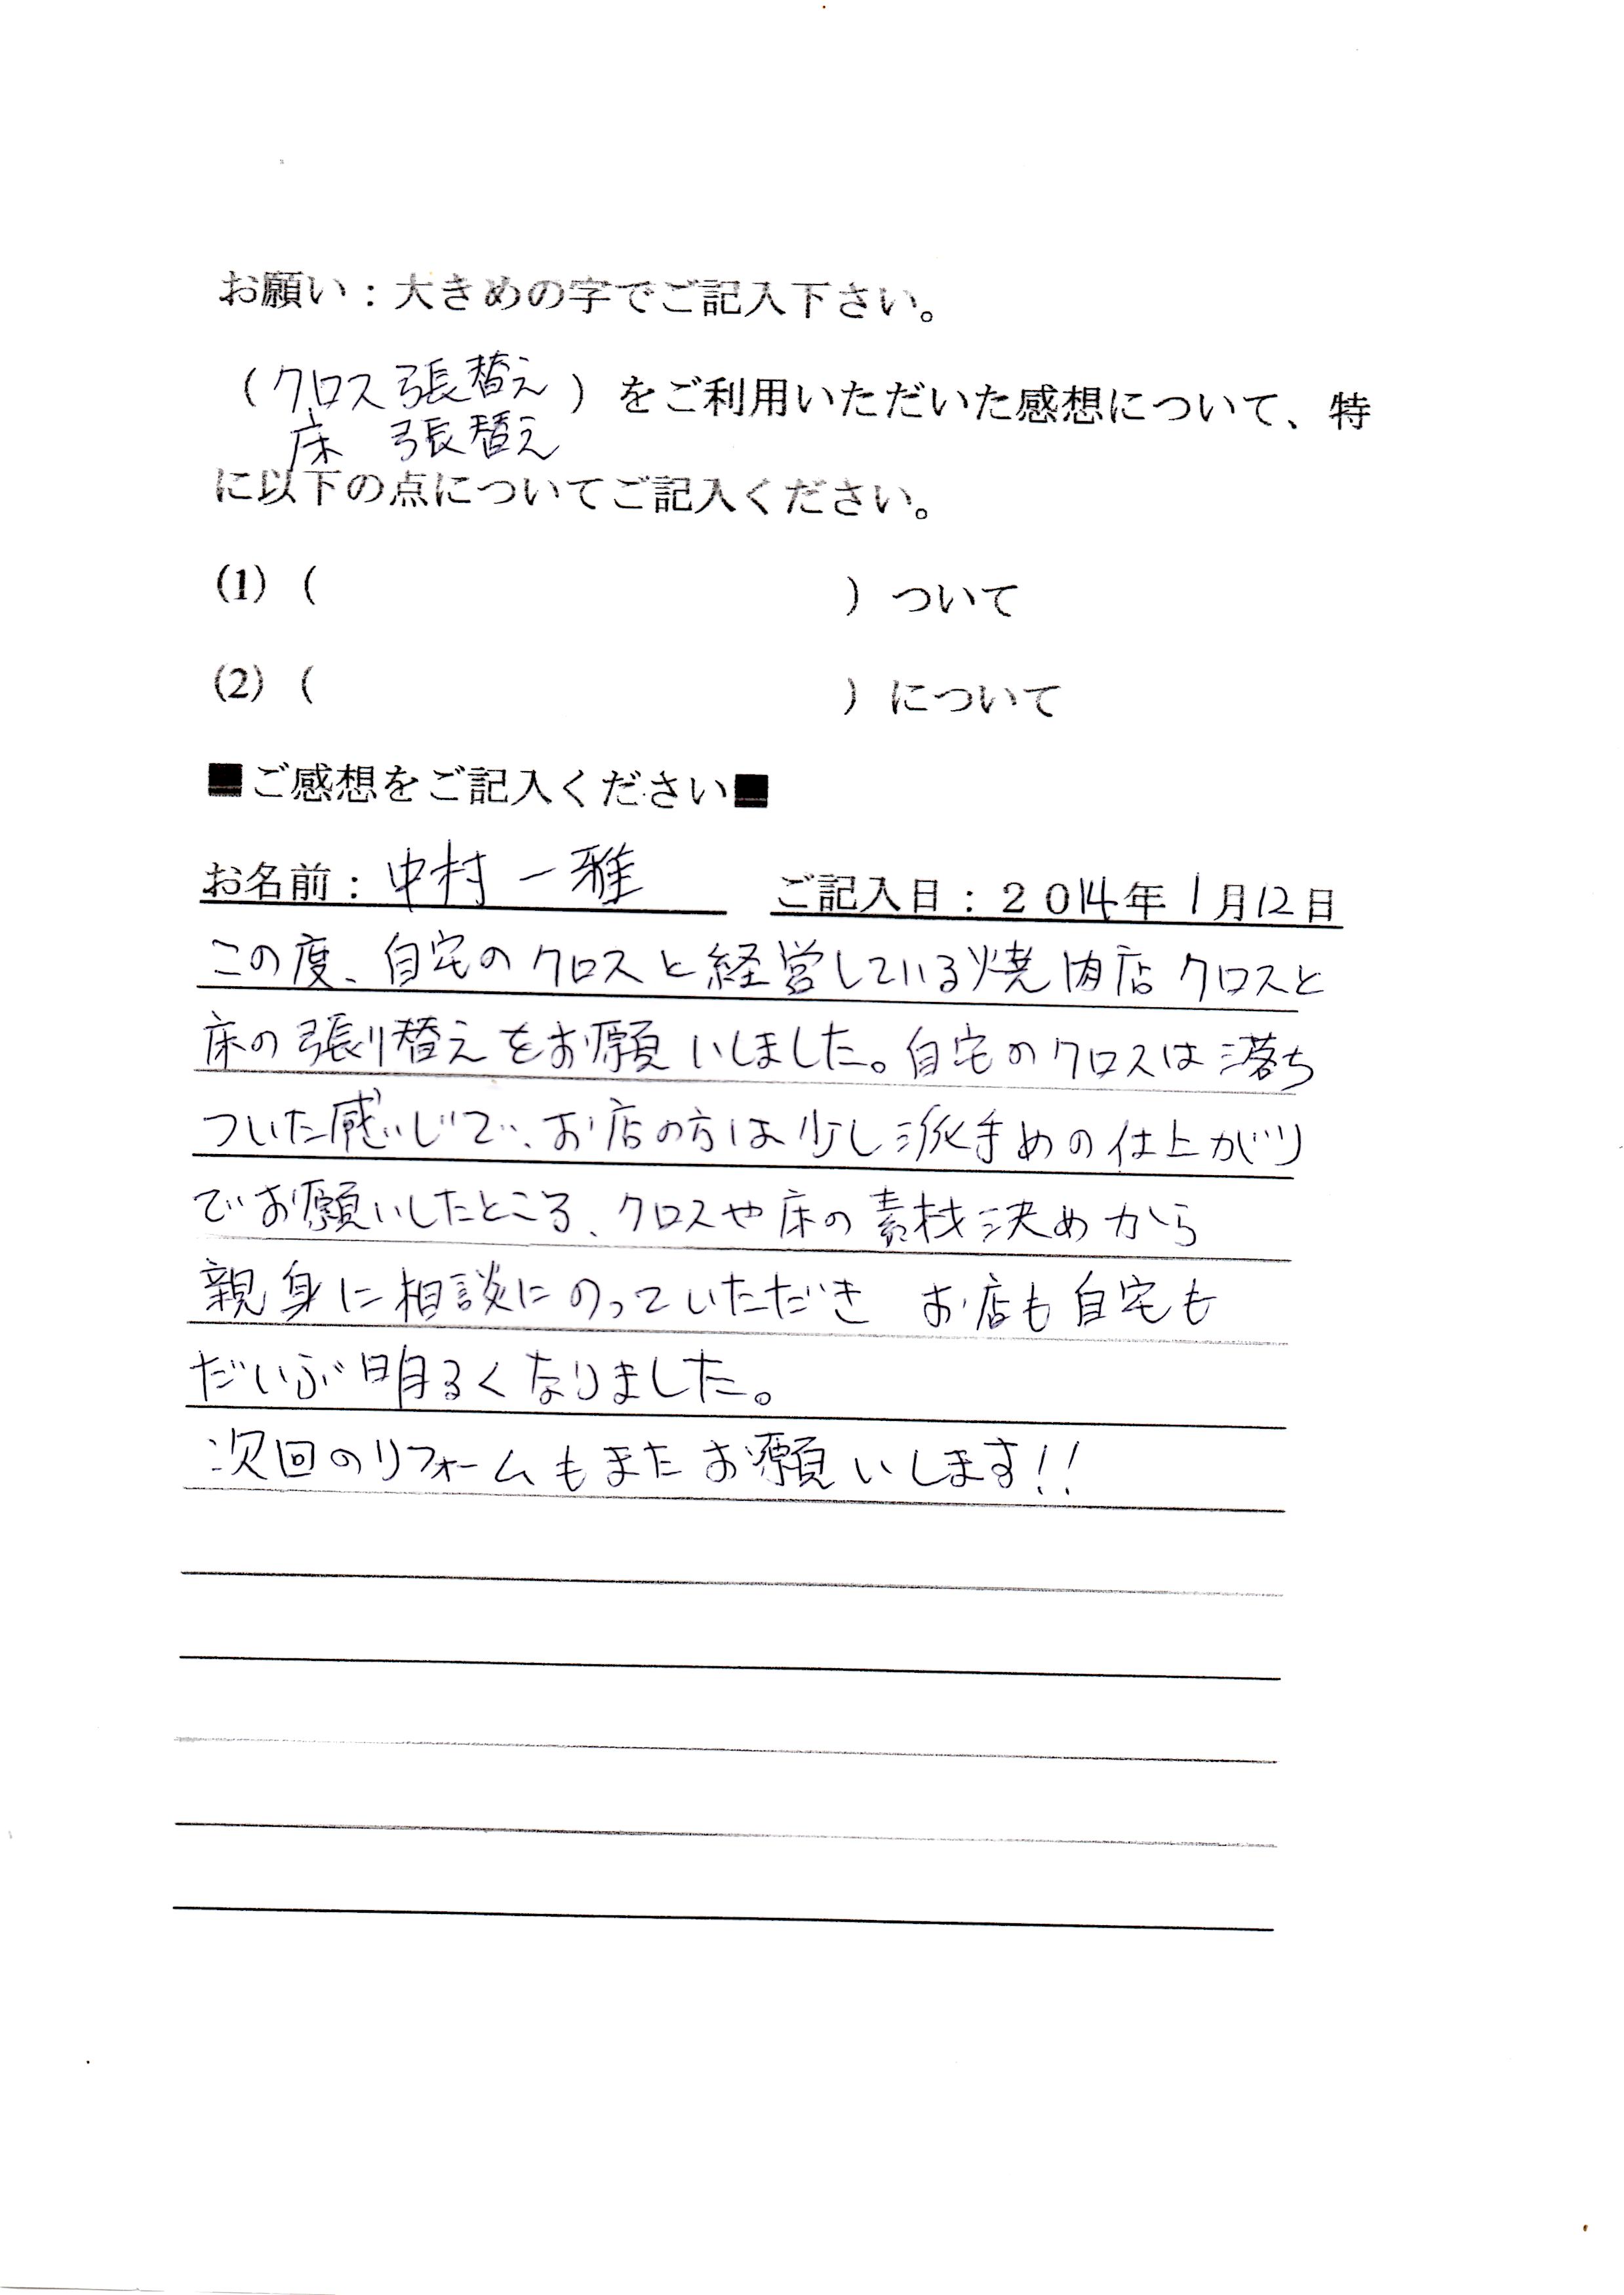 お願い：大きめの字でご記入下さい。
（クロス張替え）をご利用いただいた感想について、特
床　張替え
に以下の点についてご記入ください。
(1)（　　　　　　　　　　　　）ついて
(2)（　　　　　　　　　　　　）について
■ご感想をご記入ください■
お名前：中村一雅　ご記入日：２０１４年１月１２日
この度、自宅のクロスと経営している焼肉店クロスと
床の張り替えをお願いしました。自宅のクロスは落ち
ついた感いじで、お店の方は少し派手めの仕上がり
でお願いしたところ、クロスや床の素材決めから
親身に相談にのっていただき　お店も自宅も
だいぶ明るくなりました。
次回のリフォームもまたお願いします!!